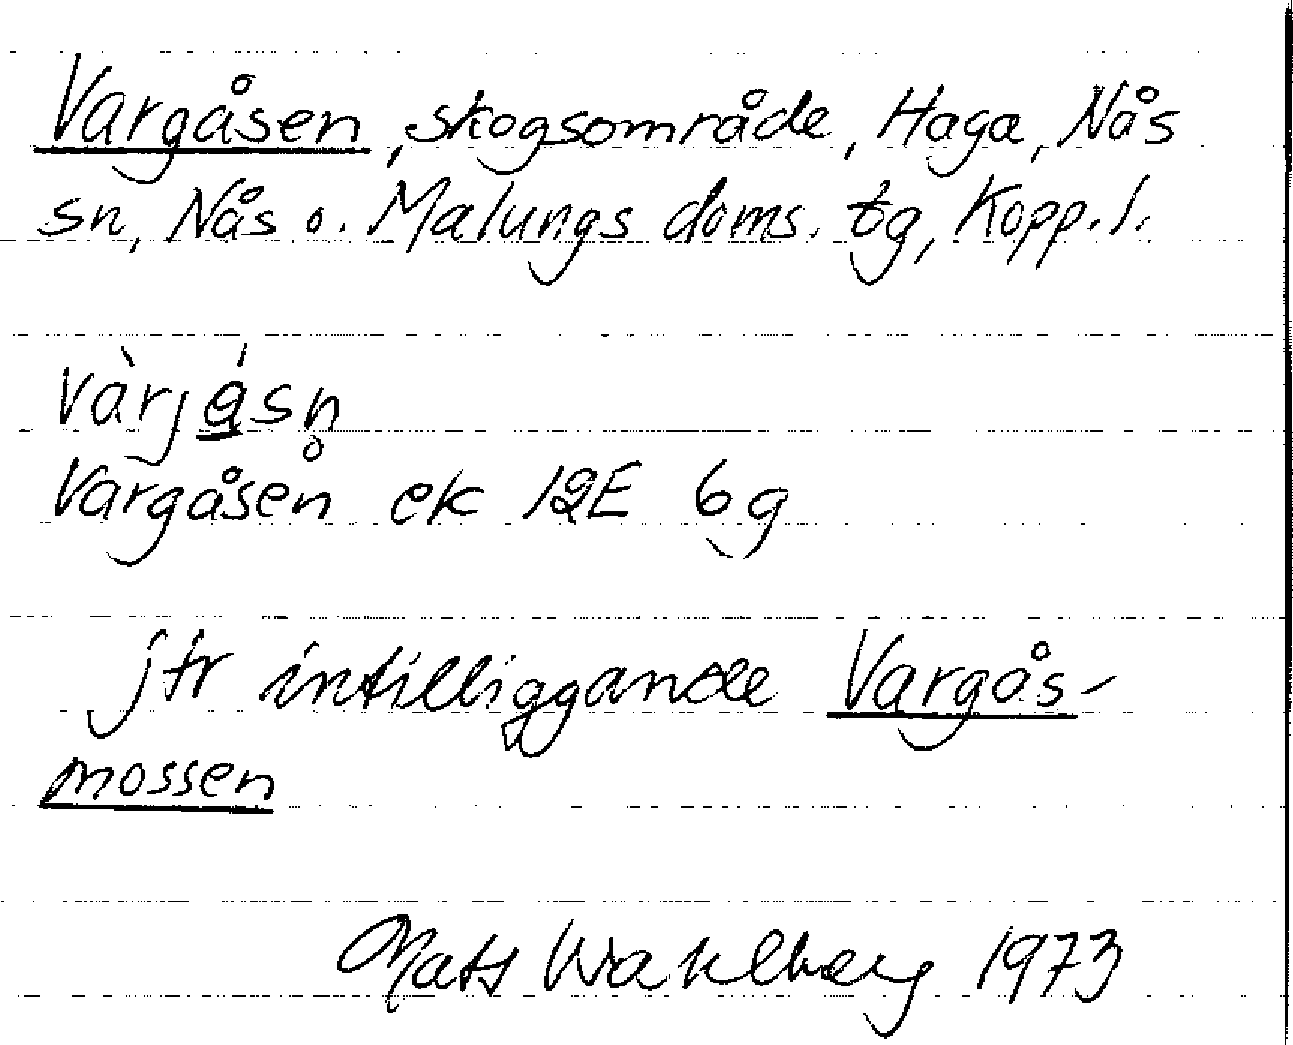 Vargåsen, skogsområde, Haga, Nås
sn, Nås o. Malungs doms. tg, Kopp. l.
vàrjǻsn̥
Vargåsen ek 12E 6g
jfr intilliggande Vargås-
mossen
Mats Wahlberg 1973